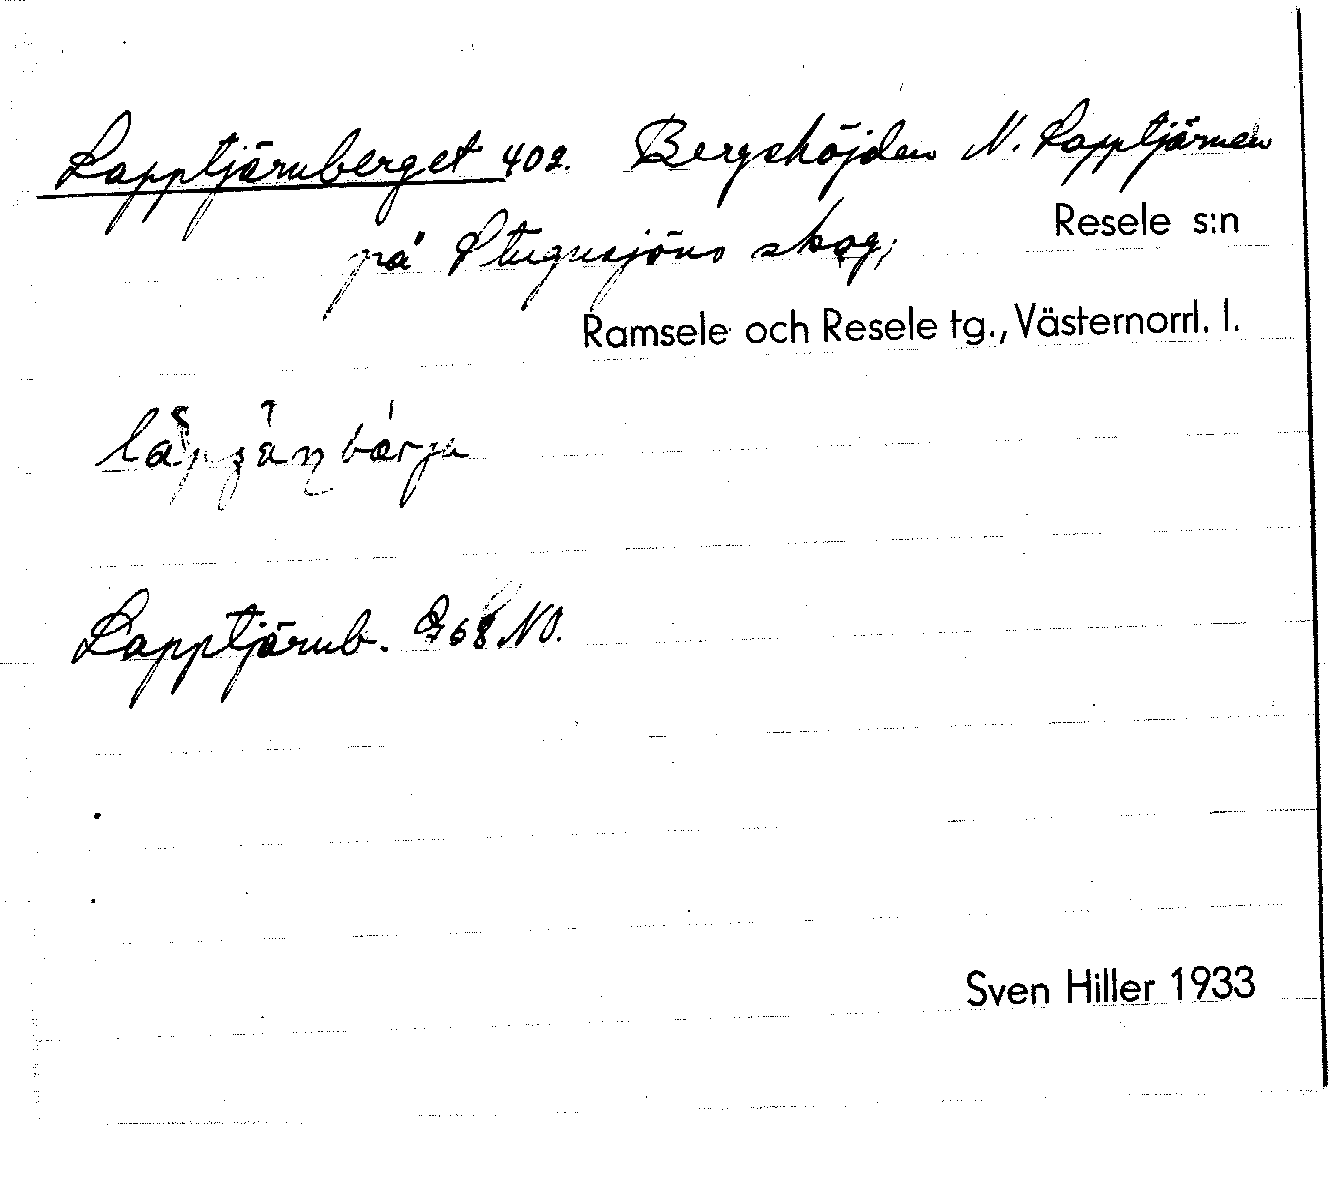 Lapptjärnberget 402. Bergshöjden N. Lapptjärnen
på Stugusjöns skog;
Resele s:n
Ramsele och Resele tg., Västernorrl. l.
Lapptjärnb. G 68 NO.
Sven Hiller 1933